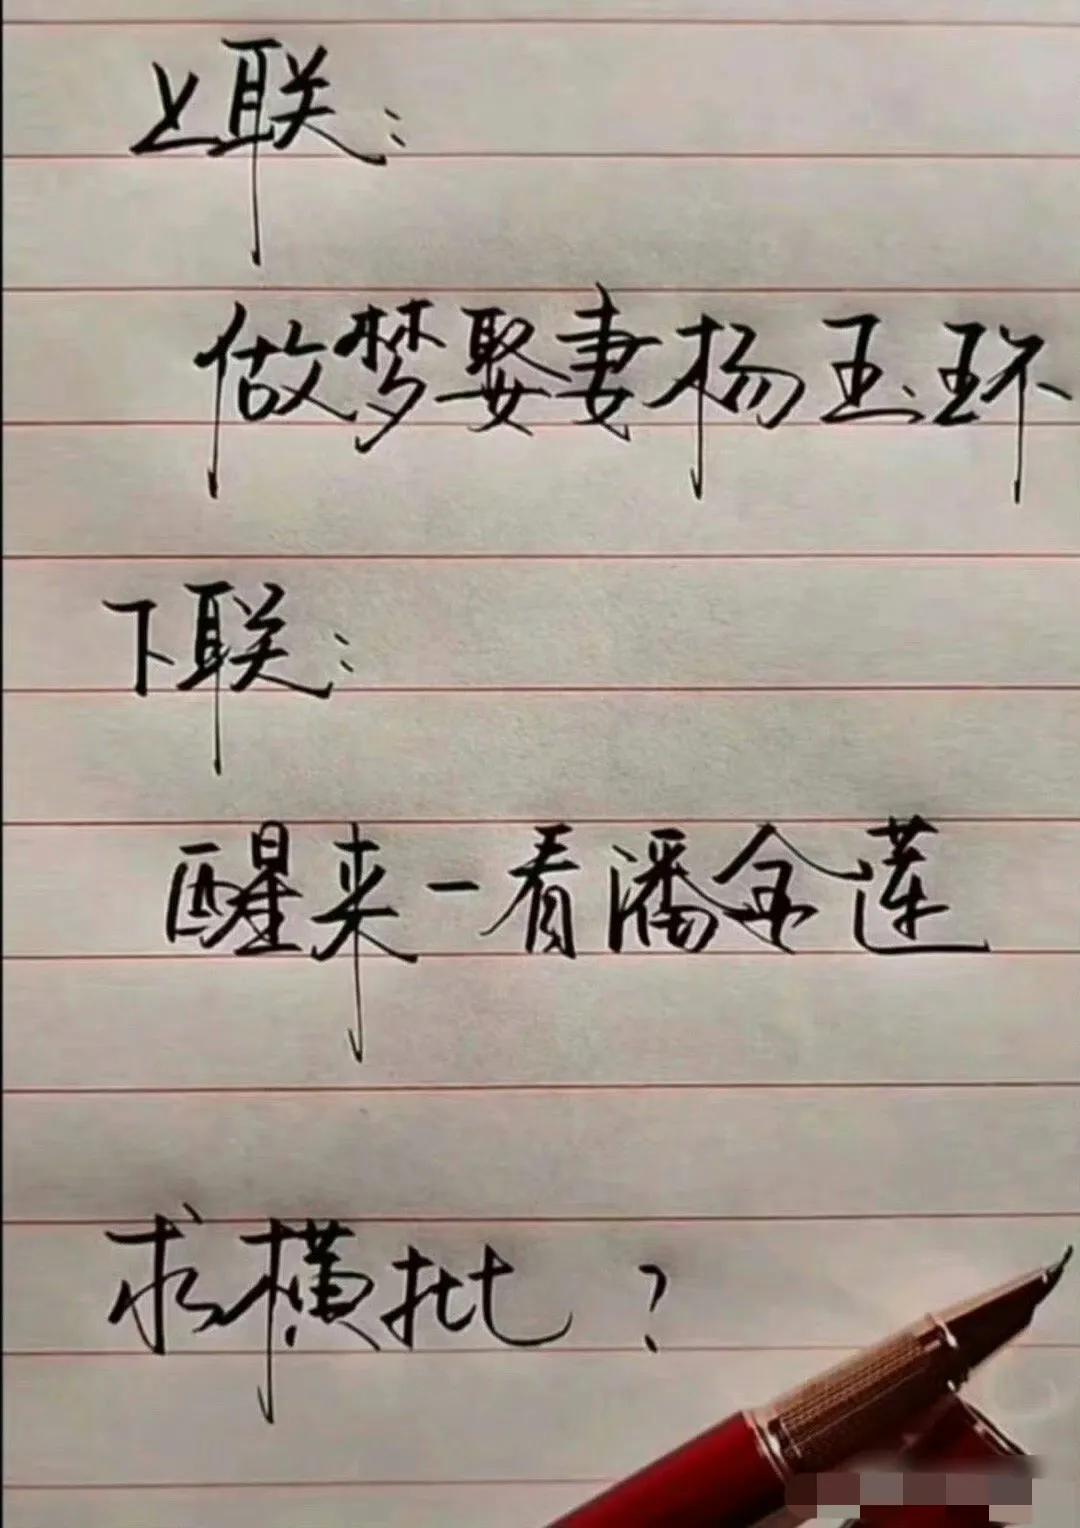 上联：
做梦娶妻杨玉环
下联：
醒来一看潘金莲
求横批？